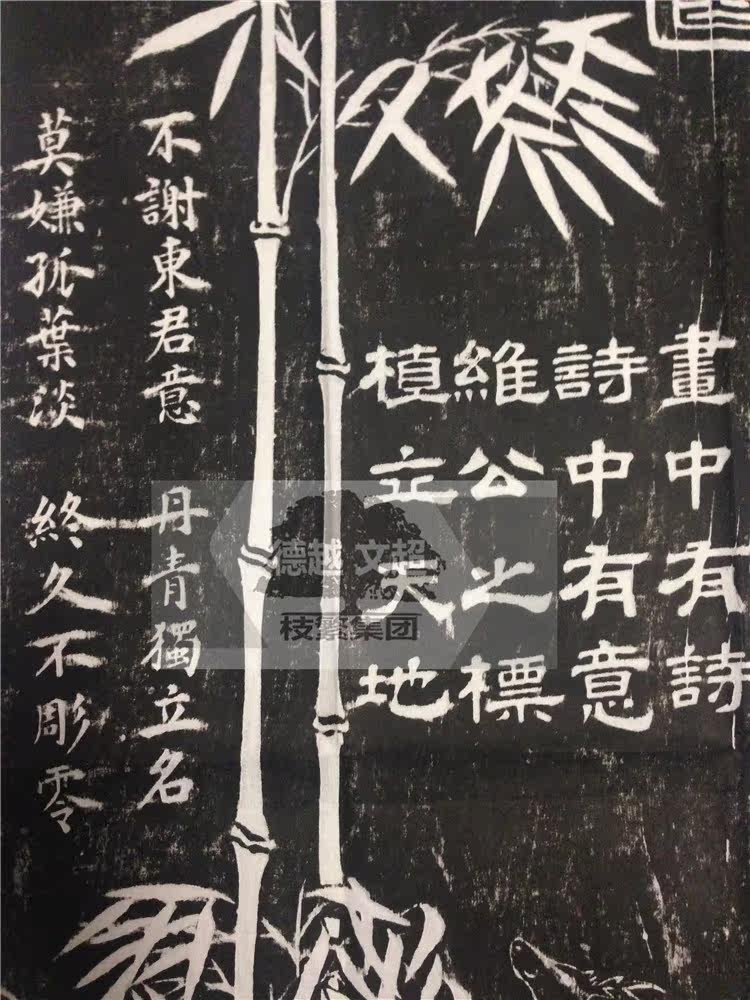 畫中有詩
詩中有意
維公之標
植立天地
不謝東君意 丹青獨立名
莫嫌孤葉淡 終久不彫零
德越文超
枝繁集团